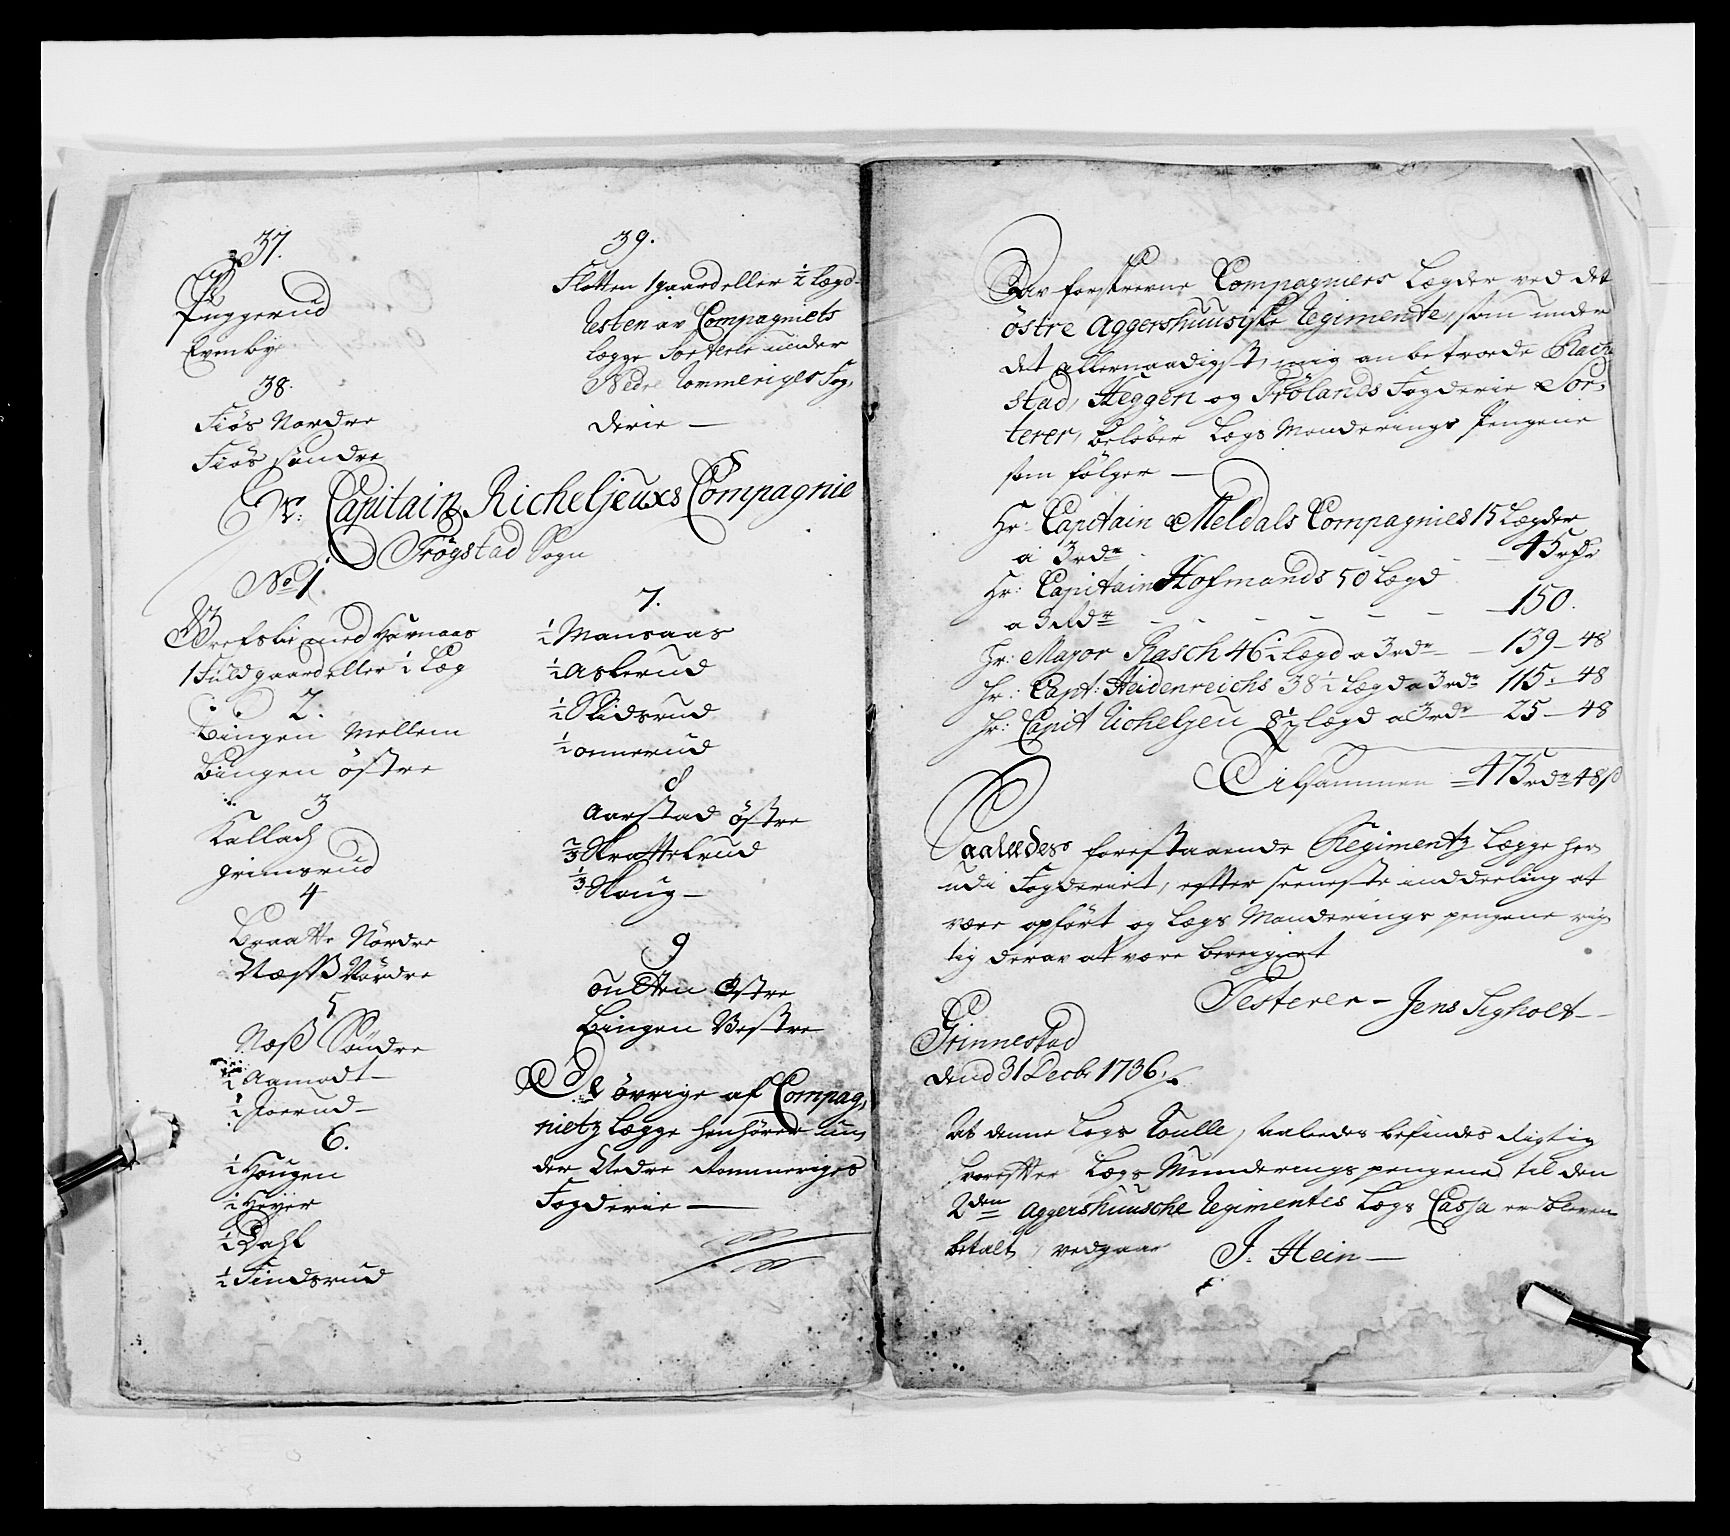 37.
Puggerud
Evenbye
38.
Fiös Nordre
Fiös söndre
39.
Slotten 1 gaard eller ½ Lægd
Resten av Compagniets
Lægge Sorterer under
Nedre Rommeriges Fog,
derie —
Hr: Capitain Richeljeuxs Compagnie
Trögstad Sogn
No 1.
med Haraas
1 Fuldgaard eller 1 Læg
2.
Bingen Mellem
Bingen östre
3
Kallach
Grimsrud
4
Braatte Nördre
Næss Nördre
5
Næss Söndre
½ Aamodt —
½ Joerud —
6.
½ Hougen
½ Heyer
½ Dahl
½ Findsrud
7.
½ Mansaas
½ Askerud
½ Skidsrud
½ Onnerud
8
Aarstad östre
⅔ Skrattekrud
⅓ Skoug —
9
östre
Bingen Vestre
De övrige af Compag,
nietz Lægge henhörer un,
der Nedre Rommeriges
Fogderie —
forskrevne Compagniers Lægder ved det
östre Aggershuusiske Regimente, som under
det allernaadigst mig anbetroede Rach,
stad, Heggen og Frölands Fogderie Sor,
terer, beløber Lægs Monderings Pengene
som fölger —
Hr: Capitain Meldals Compagnies 15 Lægder
a 3 rdr — 45 rdr
Hr: Capitain Hofmands 50 Lægd
a 3 rdr — — — — — 150.
Hr: Major Rasch 46½ Lægd a 3 rdr — 139 — 48
Hr: Capt: Heidenreichs 38½ Lægd a 3 rdr 115 — 48
Hr: Capit Richeljeu 8½ Lægd a 3 rdr — 25 — 48
Tilsammen — 475 rdr 48 s
Saaledes forestaaende Regimentz Lægge her
udi Fogderiet, efter seeneste inddeeling at
være opfört og Lægs Monderings pengene rig,
tig derav at være beregnet
Testerer — Jens Sigholt —
Grinnestad
dend 31 Decbr 1736.
At denne Lægs Roulle, saaledes befindes Rigtig
hvorefter Lægs Munderings pengene til den
2den Aggershuusche Regimentes Lægs Cassa er bleven
betalt, vedgaar J. Hein —